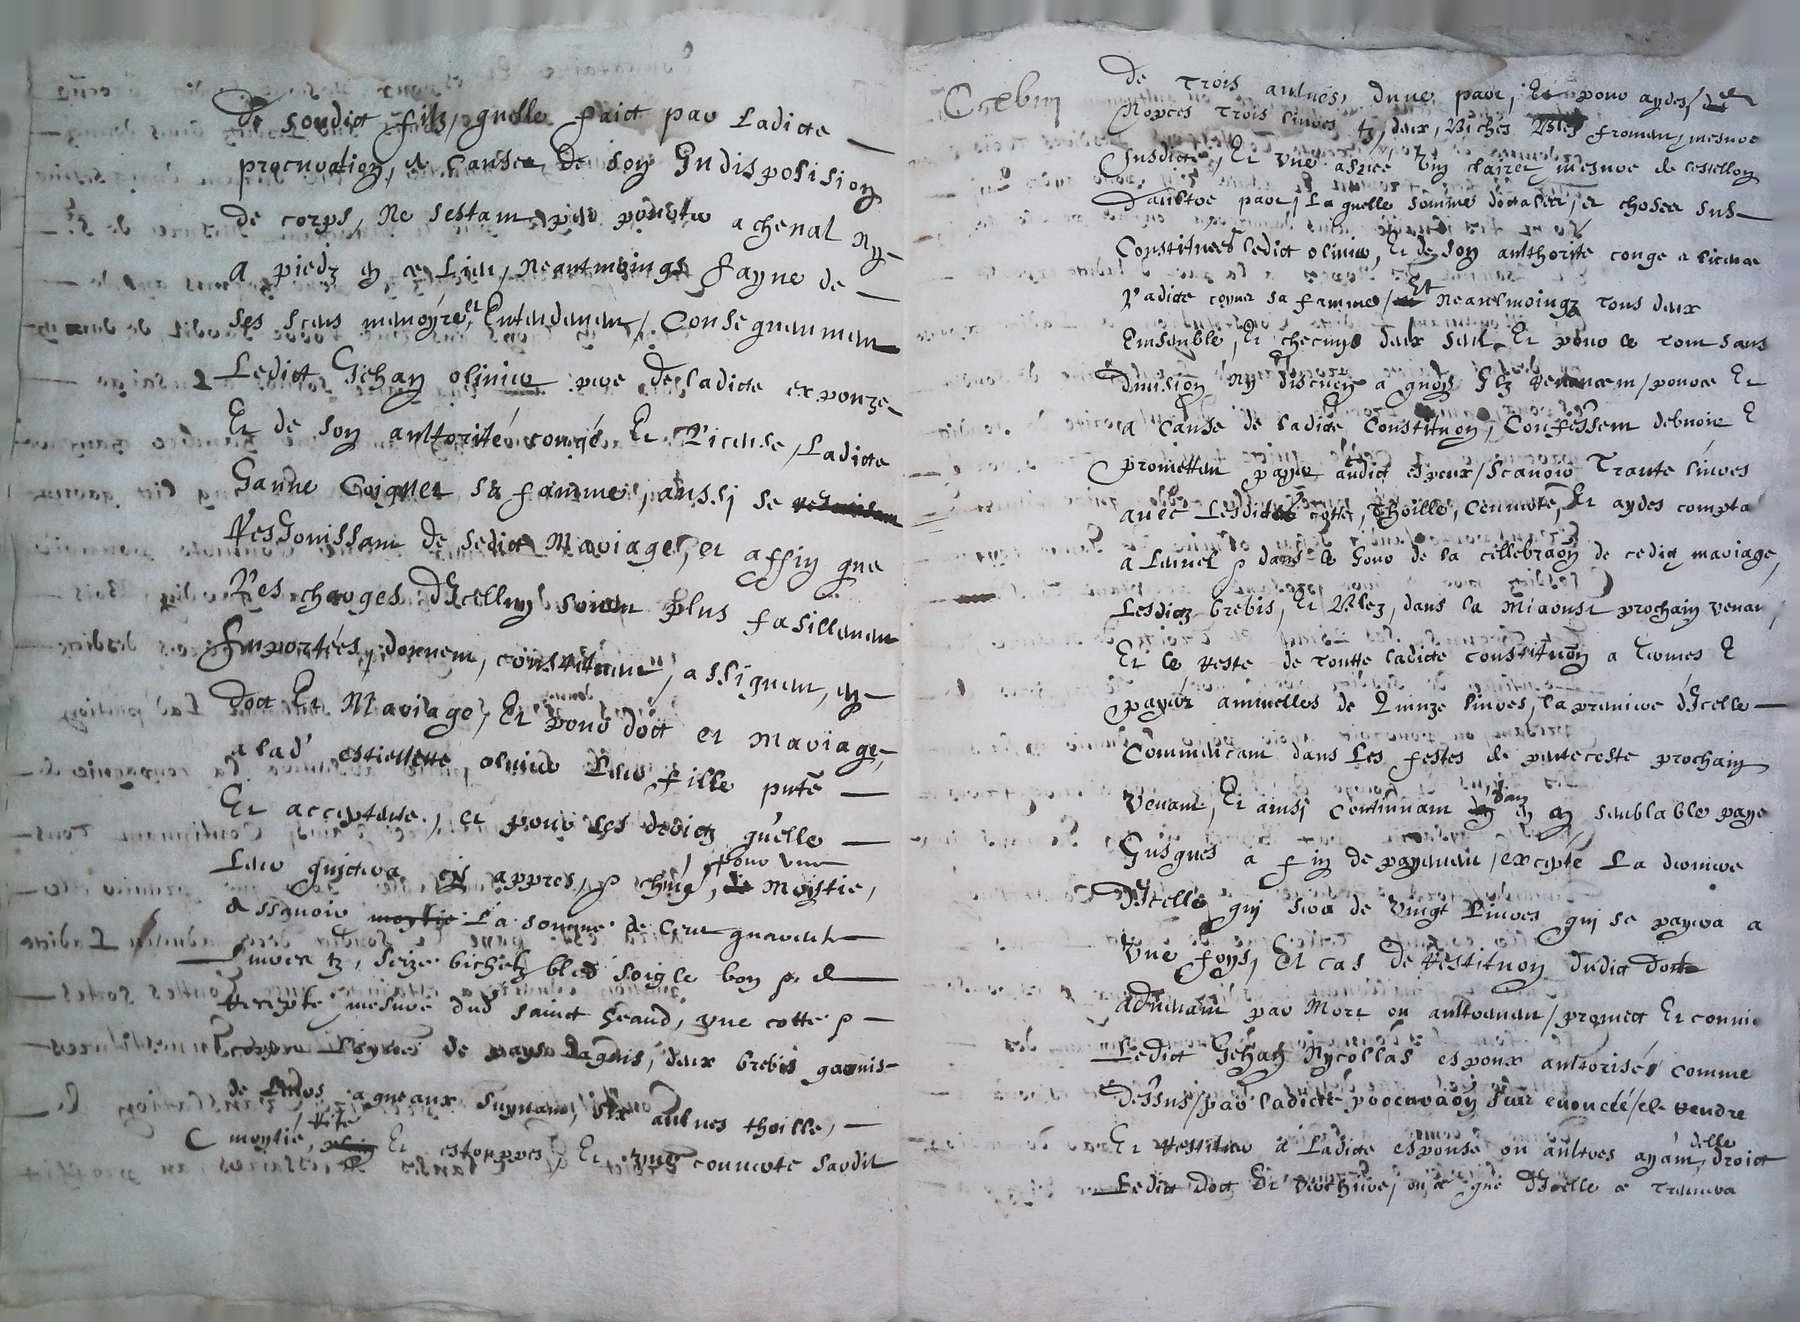 De sondict filz, quelle faict par Ladicte
procuration, a cause de son Indisposision
de corps, Ne sestant peu porter a cheval Ny
A piedz en ce Lieu, Neantmoings sayne de
ses sens memoyre et Entendement, Consequamment
Ledict Jehan olivier pere de ladicte exponze
Et de son aultorité congé Et License, Ladicte
Janne Coignet sa famme, aussi se
Resjouissant de sedict Mariage, et affin que
Les charges d'Icelluy soient plus fasillement
suportées, donnent, constituent, assignent, en
dot Et Mariage, Et pour dot et Mariage,
a lad' estiennette olivier Leur fille pnte
Et acceptante, et pour les droictz quelle
Leur quictera cy appres, p chune, pour une Moistie,
Assavoir La somme de Cent quarente
Livres tz, seize bichetz bled soigle bon p. &
Recepte mesure dud sainct Heand, une cotte p
de pays dagnis, deux brebis garnis
de Leurs agneaux suyvant, six aulnes thoille,
moytié, rite Et estouppes, Et une couverte sardit
Ccxbin
De trois aulnes, dune part, Et pour aydes des
Nopces trois livres tz, deux bichez bled froment, mesure
Susdicte, Et une asnée vin clairet mesure de cestellon
Daultre part, La quelle somme dotalle, et choses sus
Constituées ledict olivier, Et de son authorité congé e licence
Ladicte coynet sa famme, Et Neantmoingz tous deux
Emsemble, Et checung deux seul Et pour le tout sans
Division Ny discution a quoy Ilz renoncent, pour Et
A Cause de ladicte Constituon, Confessent debvoir E
promettent payer audict espoux, scavoir Trante livres
avec Lesdictes cottes, Thoille, Couverte, Et aydes compta
a Leurer p dans le Jour de la cellebraon de cedict mariage,
Lesdictz brebis, Et blez, dans la Miaoust prochain venant,
Et le reste de toutte ladicte constituon a termes E
payes annuelles de Quinze livres, la premiere d'Icelle
Commencant dans Les festes de pentecoste prochain
Venant, Et ainsi continuant dan en an semblable paye
Jusques a fin de payement, excepte La derniere
D'Icelle qui sera de Vingt Livres qui se payera a
Une foys, Et cas de Restituon dudict dot
Advenant par Mort ou aultrement, promect Et convie
Ledict Jehan Nycollas espoux aultorisé comme
Dessus, par ladicte procuraon sur enoncée, de rendre
Et restituer a Ladicte esponse ou aultres ayant delle droict
Ledict dot Et verchiere, ou ce que d'Icelle se treuvera